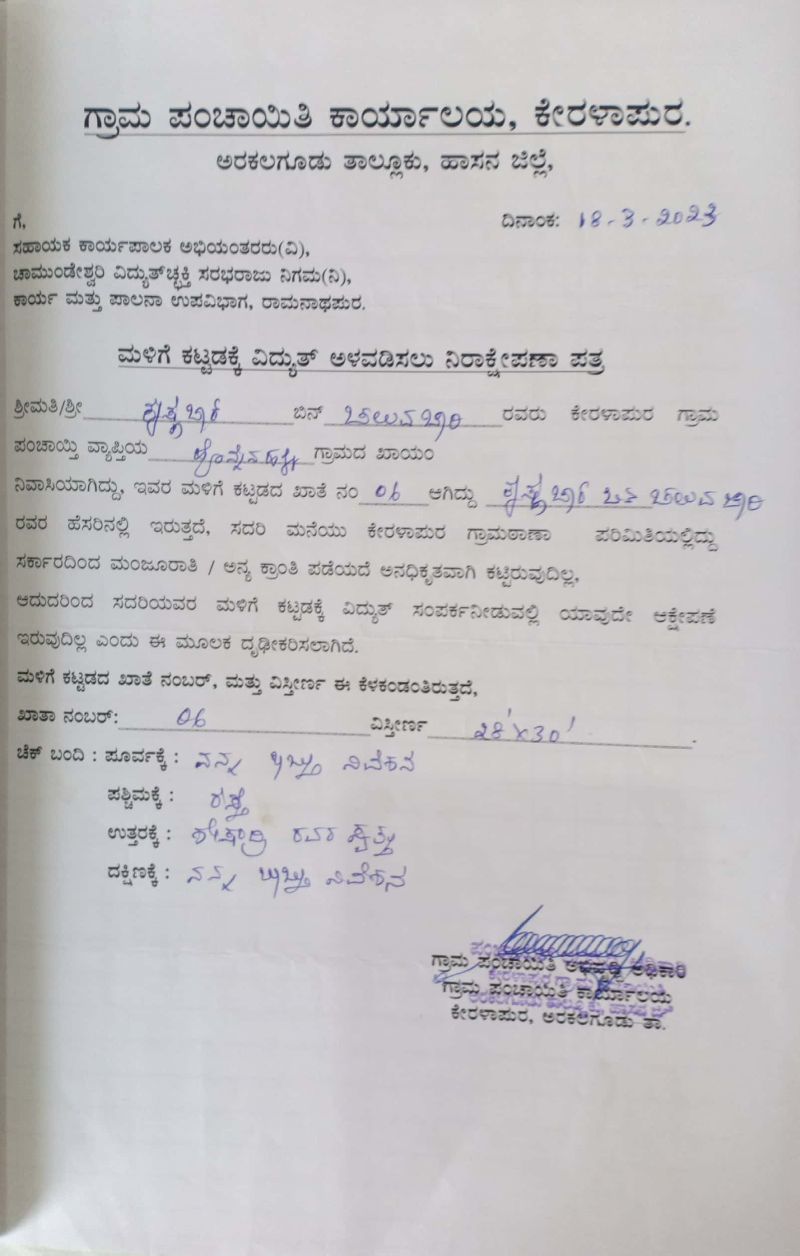 ಗ್ರಾಮ ಪಂಚಾಯಿತಿ ಕಾರ್ಯಾಲಯ, ಕೇರಳಾಪುರ.
ಅರಕಲಗೂಡು ತಾಲ್ಲೂಕು, ಹಾಸನ ಜಿಲ್ಲೆ,
ಗೆ, ದಿನಾಂಕ: 18-3-2023
ಸಹಾಯಕ ಕಾರ್ಯಪಾಲಕ ಅಭಿಯಂತರರು(ವಿ),
ಚಾಮುಂಡೇಶ್ವರಿ ವಿದ್ಯುತ್‌ಚ್ಛಕ್ತಿ ಸರಭರಾಜು ನಿಗಮ(ನಿ),
ಕಾರ್ಯ ಮತ್ತು ಪಾಲನಾ ಉಪವಿಭಾಗ, ರಾಮನಾಥಪುರ.
ಮಳಿಗೆ ಕಟ್ಟಡಕ್ಕೆ ವಿದ್ಯುತ್ ಅಳವಡಿಸಲು ನಿರಾಕ್ಷೇಪಣಾ ಪತ್ರ
ಶ್ರೀಮತಿ/ಶ್ರೀ ಬಿನ್ ರವರು ಕೇರಳಾಪುರ ಗ್ರಾಮ
ಪಂಚಾಯ್ತಿ ವ್ಯಾಪ್ತಿಯ ಗ್ರಾಮದ ಖಾಯಂ
ನಿವಾಸಿಯಾಗಿದ್ದು, ಇವರ ಮಳಿಗೆ ಕಟ್ಟಡದ ಖಾತೆ ನಂ 06 ಆಗಿದ್ದು
ರವರ ಹೆಸರಿನಲ್ಲಿ ಇರುತ್ತದೆ, ಸದರಿ ಮನೆಯು ಕೇರಳಾಪುರ ಗ್ರಾಮಠಾಣಾ ಪರಿಮಿತಿಯಲ್ಲಿದ್ದು
ಸರ್ಕಾರದಿಂದ ಮಂಜೂರಾತಿ / ಅನ್ಯ ಕ್ರಾಂತಿ ಪಡೆಯದೆ ಅನಧಿಕೃತವಾಗಿ ಕಟ್ಟಿರುವುದಿಲ್ಲ,
ಆದುದರಿಂದ ಸದರಿಯವರ ಮಳಿಗೆ ಕಟ್ಟಡಕ್ಕೆ ವಿದ್ಯುತ್ ಸಂಪರ್ಕನೀಡುವಲ್ಲಿ ಯಾವುದೇ ಆಕ್ಷೇಪಣೆ
ಇರುವುದಿಲ್ಲ ಎಂದು ಈ ಮೂಲಕ ದೃಢೀಕರಿಸಲಾಗಿದೆ.
ಮಳಿಗೆ ಕಟ್ಟಡದ ಖಾತೆ ನಂಬರ್, ಮತ್ತು ವಿಸ್ತೀರ್ಣ ಈ ಕೆಳಕಂಡಂತಿರುತ್ತದೆ,
ಖಾತಾ ನಂಬರ್: 06 ವಿಸ್ತೀರ್ಣ 28'x30' .
ಚೆಕ್ ಬಂದಿ : ಪೂರ್ವಕ್ಕೆ : ನನ್ನ ಬಿಟ್ಟು ನಿವೇಶನ
ಪಶ್ಚಿಮಕ್ಕೆ : ರಸ್ತೆ
ಉತ್ತರಕ್ಕೆ : ಶೇಷಾದ್ರಿ ರವರ ಸ್ವತ್ತು
ದಕ್ಷಿಣಕ್ಕೆ : ನನ್ನ ಬಿಟ್ಟು ನಿವೇಶನ
ಗ್ರಾಮ ಪಂಚಾಯಿತಿ ಅಭಿವೃದ್ಧಿ ಅಧಿಕಾರಿ
ಗ್ರಾಮ ಪಂಚಾಯಿತಿ ಕಾರ್ಯಾಲಯ
ಕೇರಳಾಪುರ, ಅರಕಲಗೂಡು ತಾ.